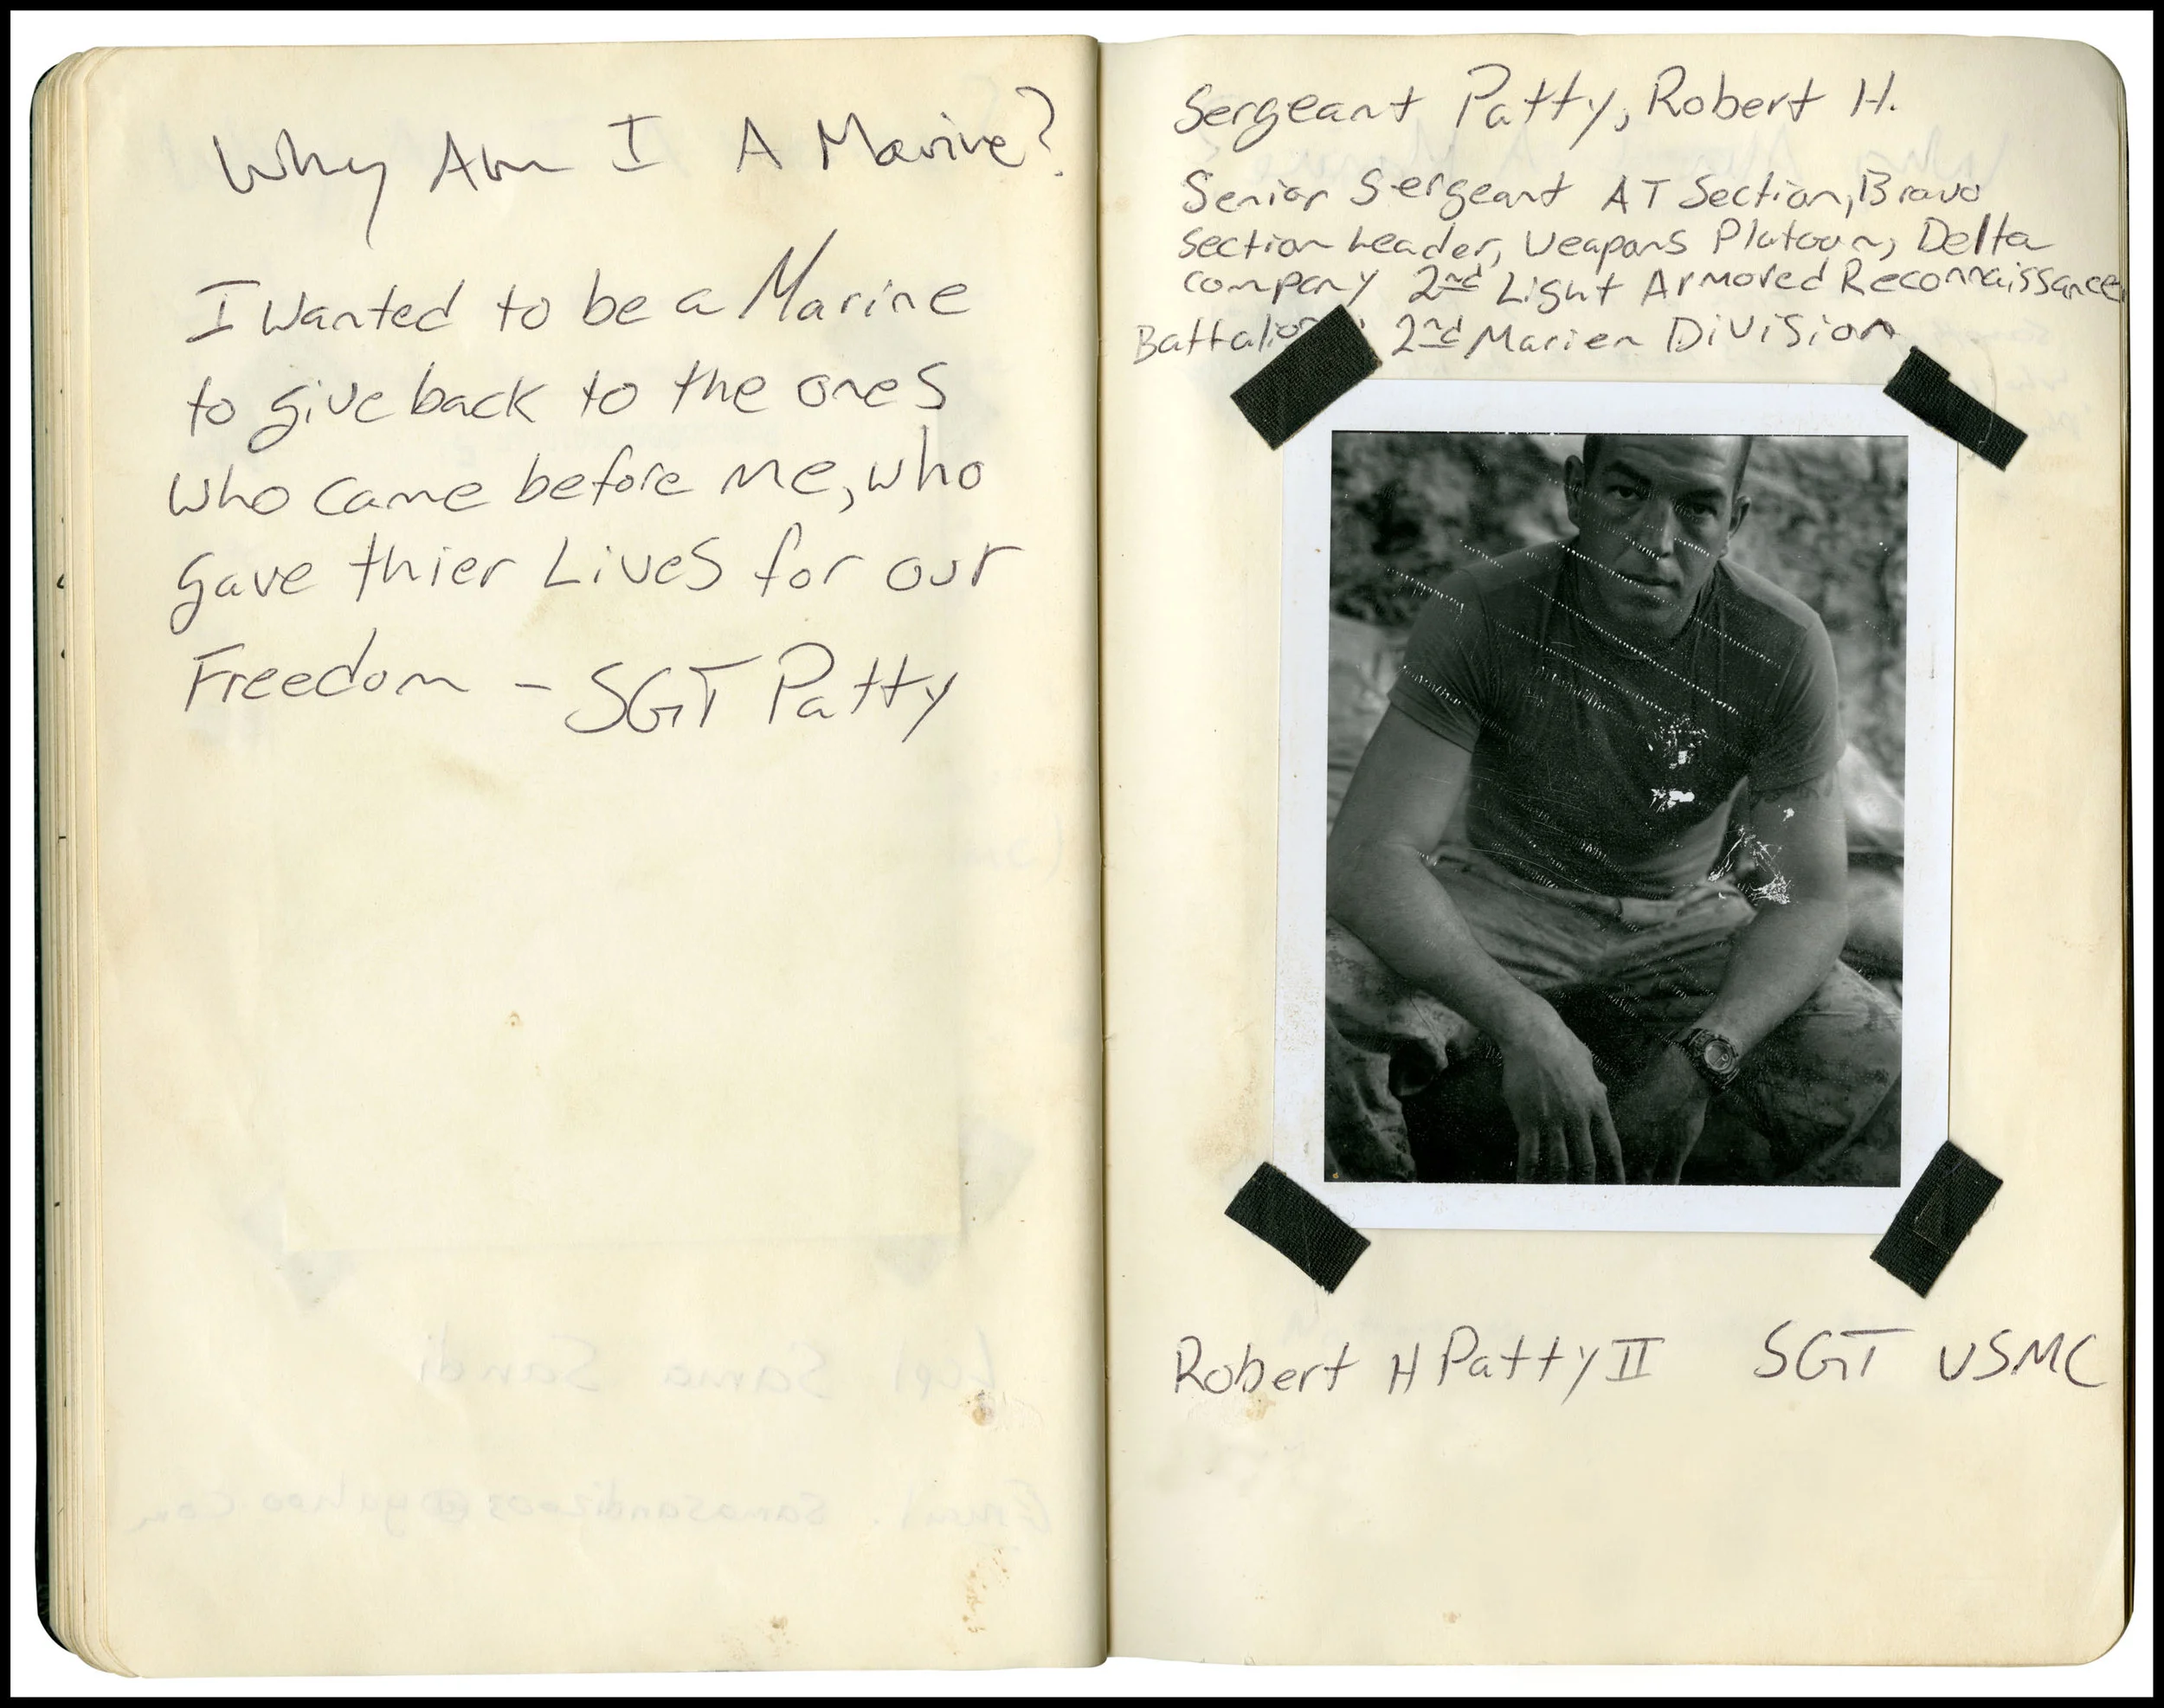 Why Am I A Marine?
I Wanted to be a Marine
to give back to the ones
who came before me, who
gave thier Lives for our
Freedom - SGT Patty
Sergeant Patty, Robert H.
Senior Sergeant AT Section, Bravo
section Leader, Weapons Platoon, Delta
company 2nd Light Armored Reconnaissance
Battalion, 2nd Marien Division
Robert H Patty II SGT USMC